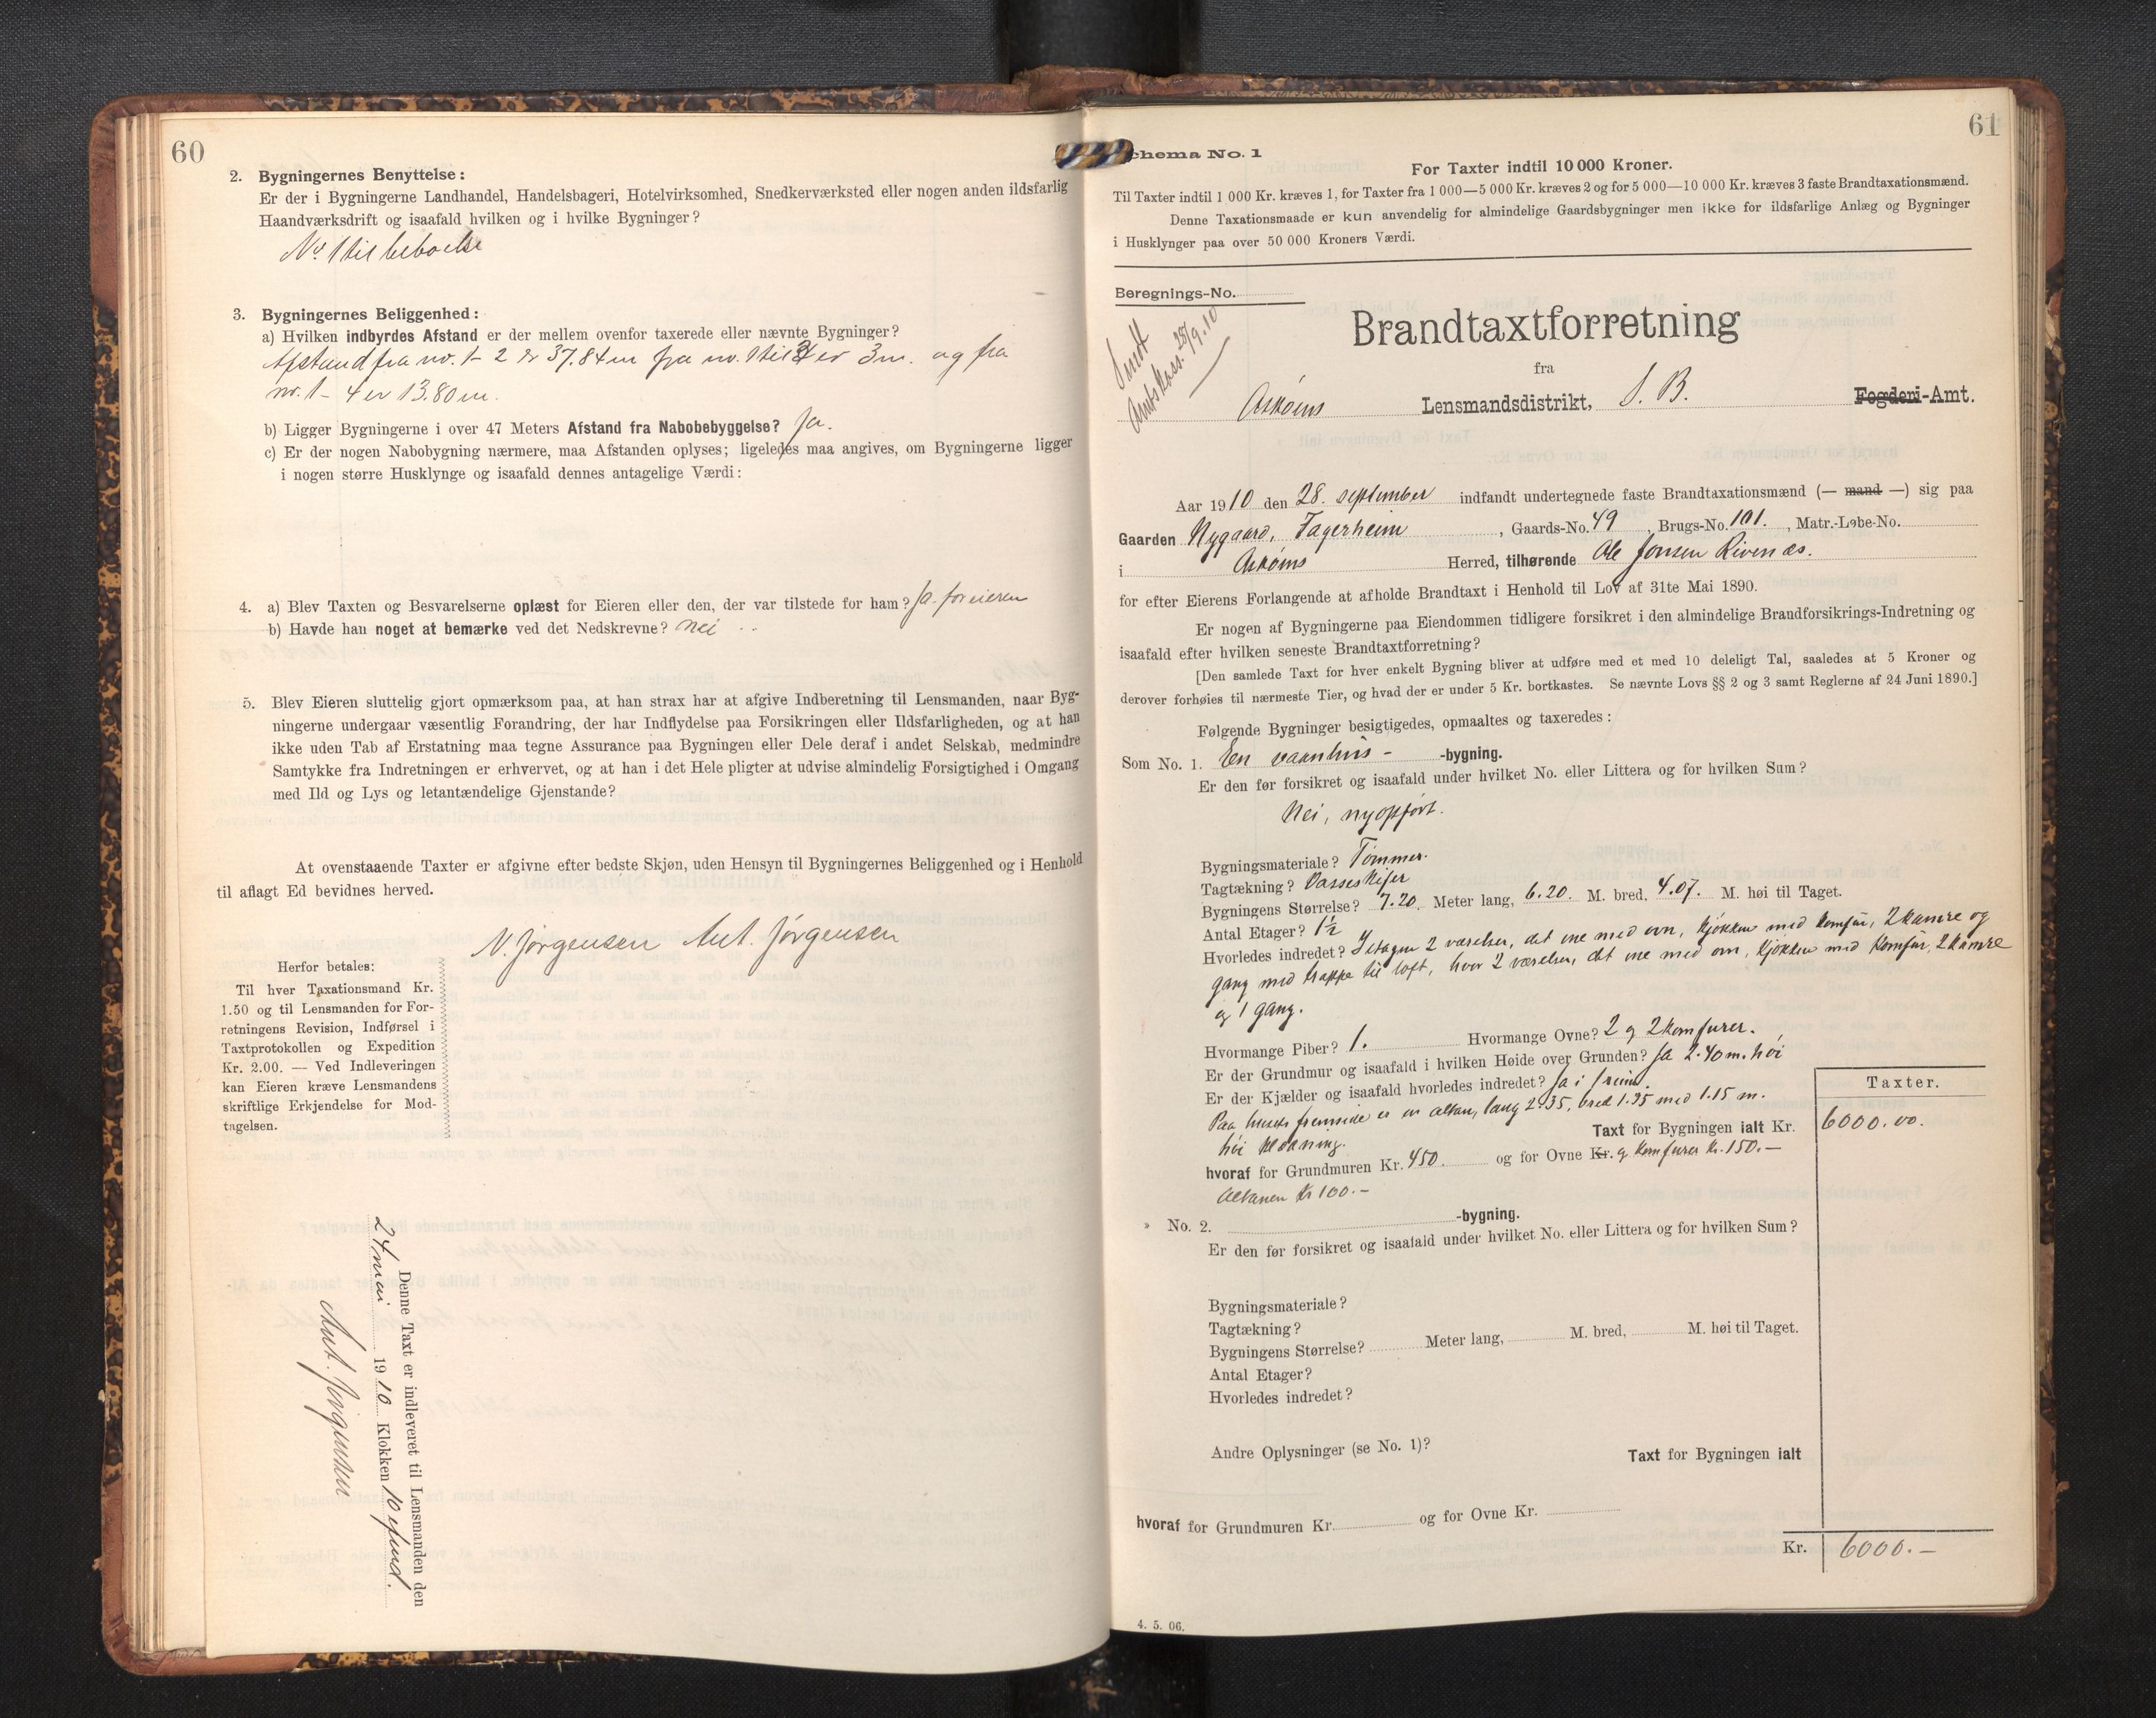 60
2. Bygningernes Benyttelse:
Er der i Bygningerne Landhandel, Handelsbageri, Hotelvirksomhed, Snedkerværksted eller nogen anden ildsfarlig
Haandværksdrift og isaafald hvilken og i hvilke Bygninger?
No. 1 til beboelse
3. Bygningernes Beliggenhed:
a) Hvilken indbyrdes Afstand er der mellem ovenfor taxerede eller nævnte Bygninger?
Afstand fra no. 1 - 2 er 37.84 m fra no. 1 til 3 er 3 m. og fra
nr. 1 - 4 er 13.80 m.
b) Ligger Bygningerne i over 47 Meters Afstand fra Nabobebyggelse? Ja.
c) Er der nogen Nabobygning nærmere, maa Afstanden oplyses; ligeledes maa angives, om Bygningerne ligger
i nogen større Husklynge og isaafald dennes antagelige Værdi:
4. a) Blev Taxten og Besvarelserne oplæst for Eieren eller den, der var tilstede for ham? Ja. for eieren
b) Havde han noget at bemærke ved det Nedskrevne? nei
5. Blev Eieren sluttelig gjort opmærksom paa, at han strax har at afgive Indberetning til Lensmanden, naar Byg-
ningerne undergaar væsentlig Forandring, der har Indflydelse paa Forsikringen eller Ildsfarligheden, og at han
ikke uden Tab af Erstatning maa tegne Assurance paa Bygningen eller Dele deraf i andet Selskab, medmindre
Samtykke fra Indretningen er erhvervet, og at han i det Hele pligter at udvise almindelig Forsigtighed i Omgang
med Ild og Lys og letantændelige Gjenstande?
At ovenstaaende Taxter er afgivne efter bedste Skjøn, uden Hensyn til Bygningernes Beliggenhed og i Henhold
til aflagt Ed bevidnes herved.
N. Jørgensen Ant. Jørgensen
Herfor betales:
Til hver Taxationsmand Kr.
1.50 og til Lensmanden for For-
retningens Revision, Indførsel i
Taxtprotokollen og Expedition
Kr. 2.00. — Ved Indleveringen
kan Eieren kræve Lensmandens
skriftlige Erkjendelse for Mod-
tagelsen.
Denne Taxt er indleveret til Lensmanden den
24 mai 1910 Klokken 10 efmd.
Ant. Jørgensen
61
chema No. 1
For Taxter indtil 10 000 Kroner.
Til Taxter indtil 1 000 Kr. kræves 1, for Taxter fra 1 000—5 000 Kr. kræves 2 og for 5 000—10 000 Kr. kræves 3 faste Brandtaxationsmænd.
Denne Taxationsmaade er kun anvendelig for almindelige Gaardsbygninger men ikke for ildsfarlige Anlæg og Bygninger
i Husklynger paa over 50 000 Kroners Værdi.
Beregnings-No.
Sendt
Amtskass. 28/9.10
Brandtaxtforretning
fra
Askøens Lensmandsdistrikt, S. B. Fogderi-Amt.
Aar 1910 den 28. september indfandt undertegnede faste Brandtaxationsmænd (— mand —) sig paa
Gaarden Nygaard, Fagerheim, Gaards-No. 49, Brugs-No. 101., Matr.-Løbe-No.
i Askøens Herred, tilhørende Ole Jonsen Rivenæs.
for efter Eierens Forlangende at afholde Brandtaxt i Henhold til Lov af 31te Mai 1890.
Er nogen af Bygningerne paa Eiendommen tidligere forsikret i den almindelige Brandforsikrings-Indretning og
isaafald efter hvilken seneste Brandtaxtforretning?
[Den samlede Taxt for hver enkelt Bygning bliver at udføre med et med 10 deleligt Tal, saaledes at 5 Kroner og
derover forhøies til nærmeste Tier, og hvad der er under 5 Kr. bortkastes. Se nævnte Lovs §§ 2 og 3 samt Reglerne af 24 Juni 1890.]
Følgende Bygninger besigtigedes, opmaaltes og taxeredes:
Som No. 1. En vaanhus - -bygning.
Er den før forsikret og isaafald under hvilket No. eller Littera og for hvilken Sum?
Nei, nyopført.
Bygningsmateriale? Tømmer.
Tagtækning? Vasseskifer
Bygningens Størrelse? 7.20. Meter lang, 6.20. M. bred, 4.07. M. høi til Taget.
Antal Etager? 1½
Hvorledes indredet? I etagen 2 værelser, det ene med ovn, kjøkken med komfur, 2 kamre og
gang med trappe til loft, hvor 2 værelser, det ene med ovn, kjøkken med komfur, 2 kamre
og 1 gang.
Hvormange Piber? 1. Hvormange Ovne? 2 og 2 komfurer.
Er der Grundmur og isaafald i hvilken Høide over Grunden? Ja 2.40 m. høi
Er der Kjælder og isaafald hvorledes indredet? Ja i
Paa husets fremside er en altan, lang 2.35, bred 1.35 med 1.15 m.
høi klædning.
Taxt for Bygningen ialt Kr.
Taxter.
6000.00.
hvoraf for Grundmuren Kr. 450. og for Ovne Kr. og komfurer Kr. 150.—
Altanen Kr 100.—
» No. 2. -bygning.
Er den før forsikret og isaafald under hvilket No. eller Littera og for hvilken Sum?
Bygningsmateriale?
Tagtækning?
Bygningens Størrelse? Meter lang, M. bred, M. høi til Taget.
Antal Etager?
Hvorledes indredet?
Andre Oplysninger (se No. 1)?
Taxt for Bygningen ialt
hvoraf for Grundmuren Kr. og for Ovne Kr.
Kr. 6000.—
4. 5. 06.